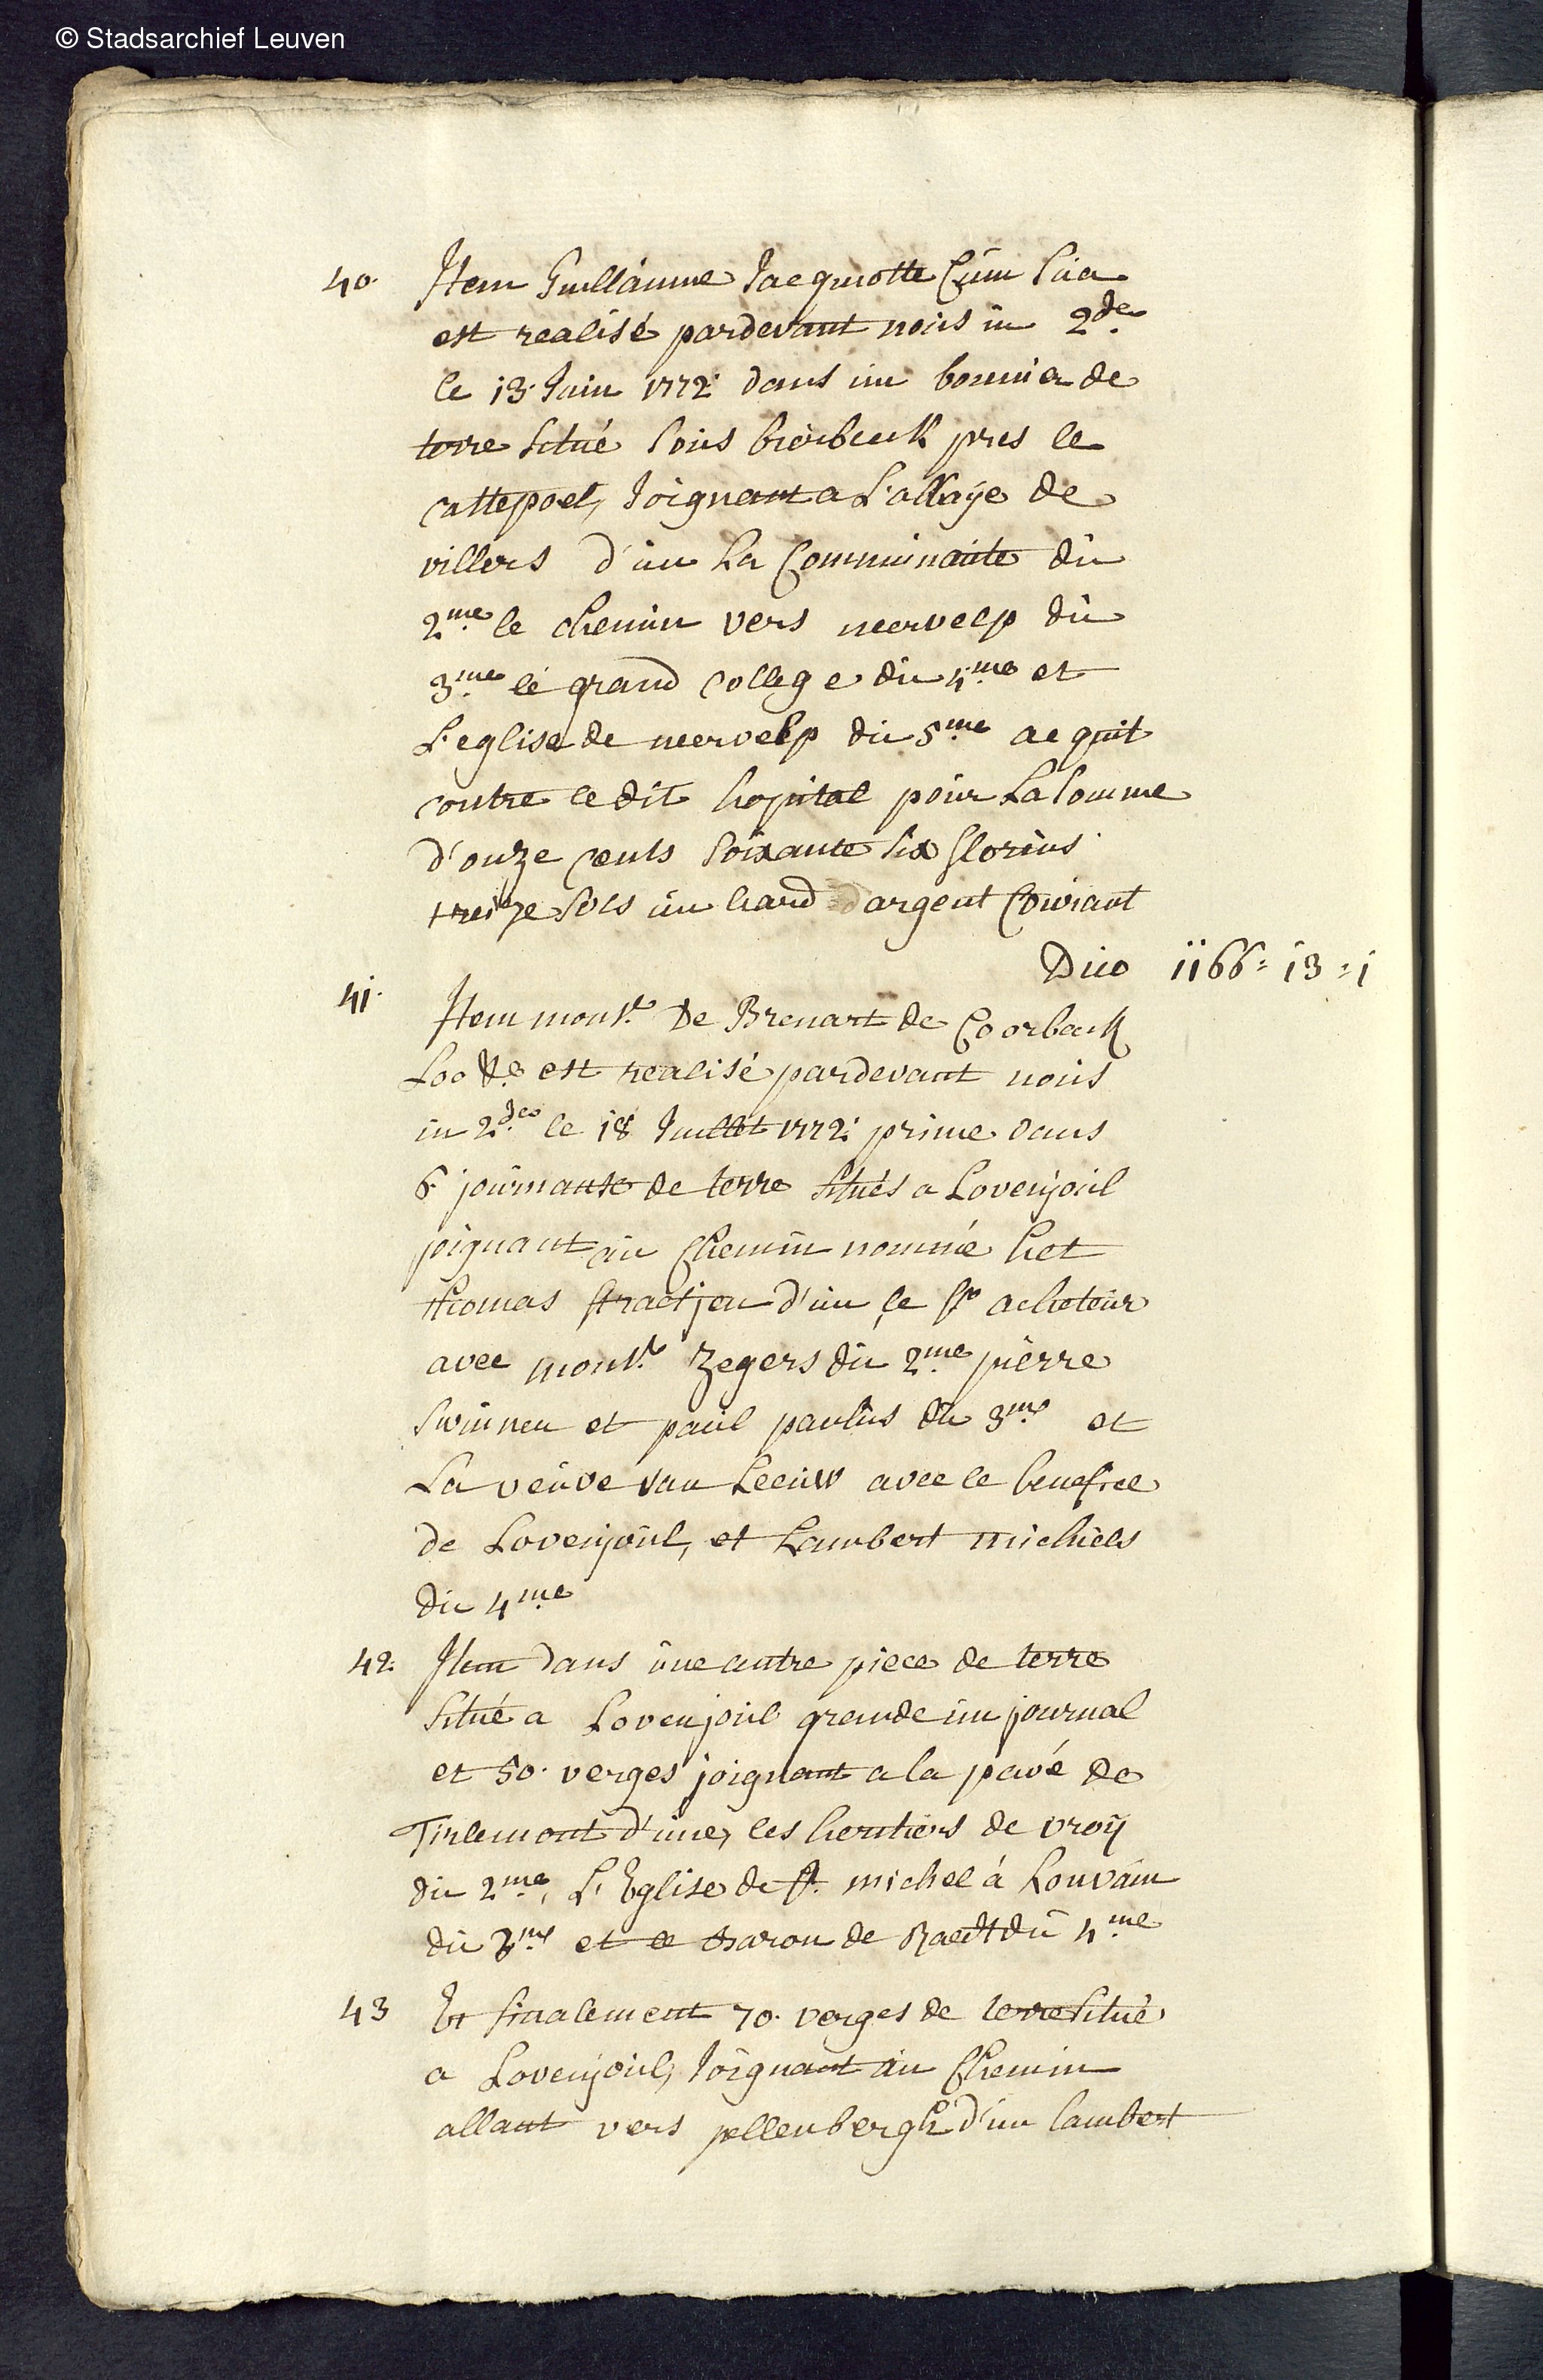 © Stadsarchief Leuven
40. Item Guilliaume Jacquiotte Cum sua
est realisé pardevant nous in 2de
le 13. Juin 1772: dans un bonnier de
terre situé sous bierbeeck pres le
cattepoel, Joignant a L'abbaÿe de
villers d'un La Communauté du
2me le chemin vers meervelp du
3me le grand college du 4me et
L'eglise de meervelp du 5me acquit
contre le dit hopital pour La somme
d'onze cents soixante six florins
treize sols un liard d'argent Courant
Dico 1166 = 13 = 1
41. Item monsr. De Brenart de Corbeeck
Loo &a est realisé pardevant nous
in 2de le 18 Juillet 1772: prime dans
6 journaux de terre situés a Lovenjoul
joignant au Chemin nommé het
thomas straetjen d'un, le sr acheteur
avec monsr. Zegers du 2me pierre
Swinnen et paul paulus du 3me et
La veuve van Leeuw avec le benefice
de Lovenjoul, et Lambert michiels
du 4me
42: Item dans une autre piece de terre
situé a Lovenjoul grande un journal
et 50. verges joignant a la pavé de
Tirlemont d'une, les heritiers de vroÿ
du 2me, L'Eglise de St. michel à Louvain
du 3me et le Baron de Raedt du 4me
43 Et finalement 70. verges de terre situé
a Lovenjoul, Joignant au Chemin
allant vers pellenbergh d'un lambert